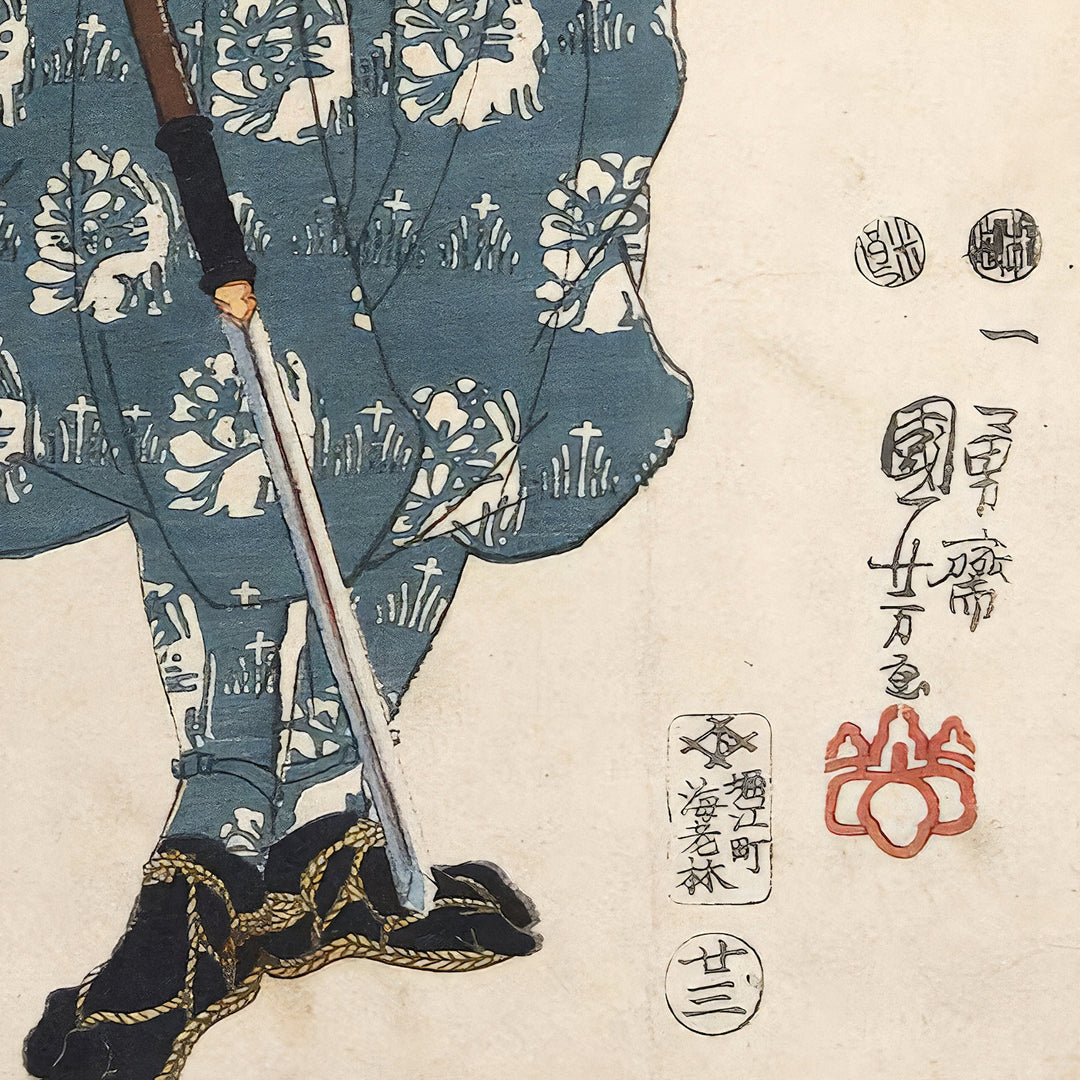 一勇齋
國芳画
堀江町
海老林
廿三